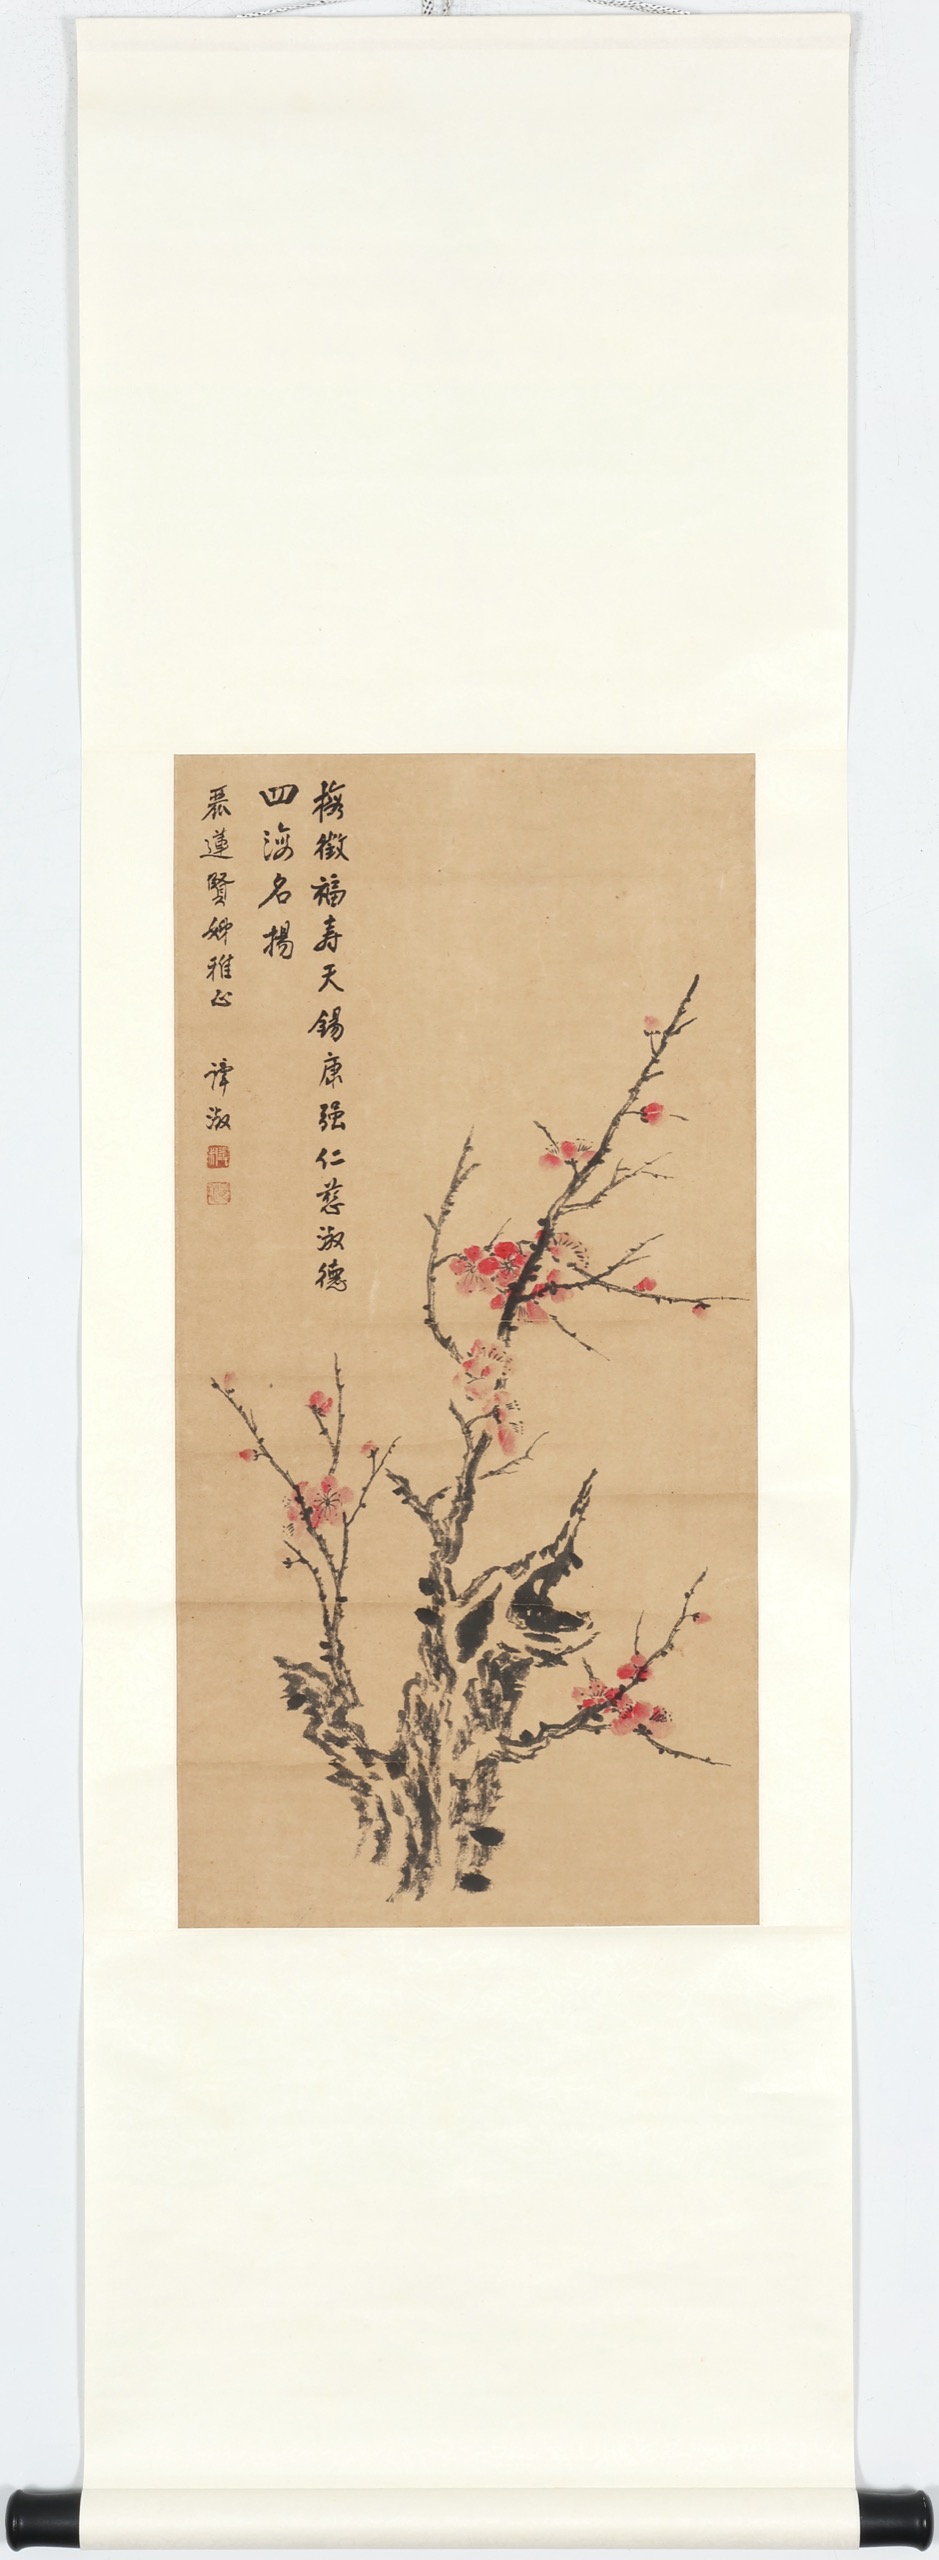 梅徵福寿天錫康强仁慈淑德
四海名揚
麗蓮賢姊雅正 譚淑